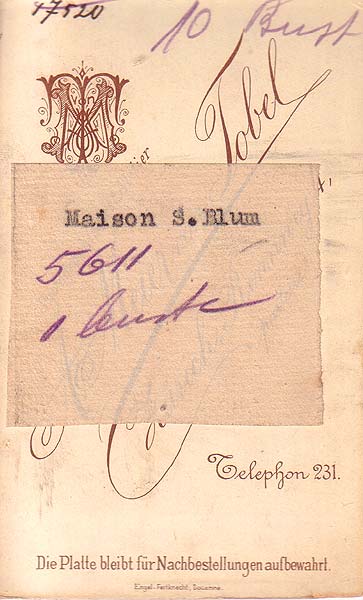 17520
10 Bust
Tobel
Maison S.Blum
5611
1 buste
Telephon 231.
Die Platte bleibt für Nachbestellungen aufbewahrt.
Engel-Feitknecht, Douanne.